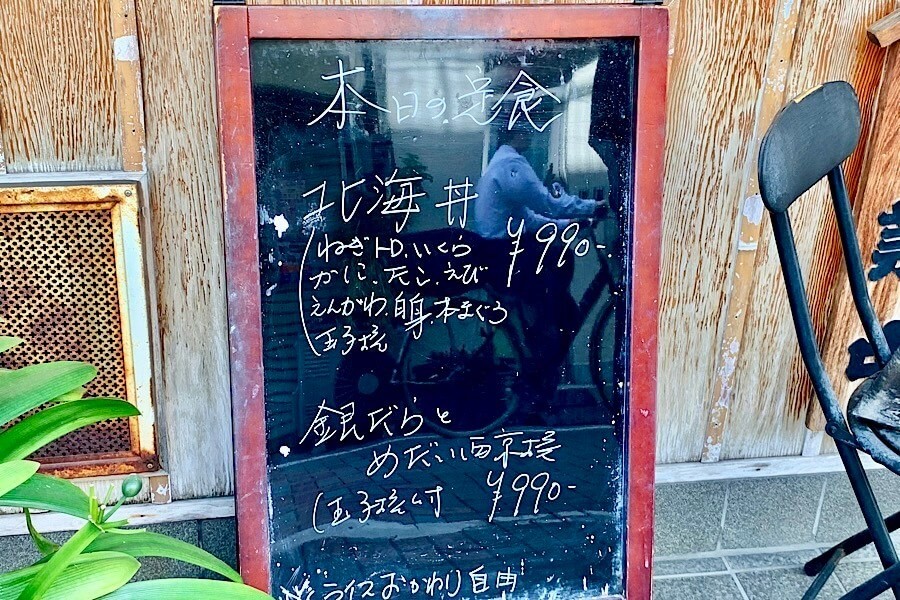 本日の定食
北海丼
ねぎトロ.いくら ¥990-
かに.たこ.えび
えんがわ.白身.本まぐろ
玉子焼
銀だらと
めだい西京焼
(玉子焼付 ¥990-
ライスおかわり自由